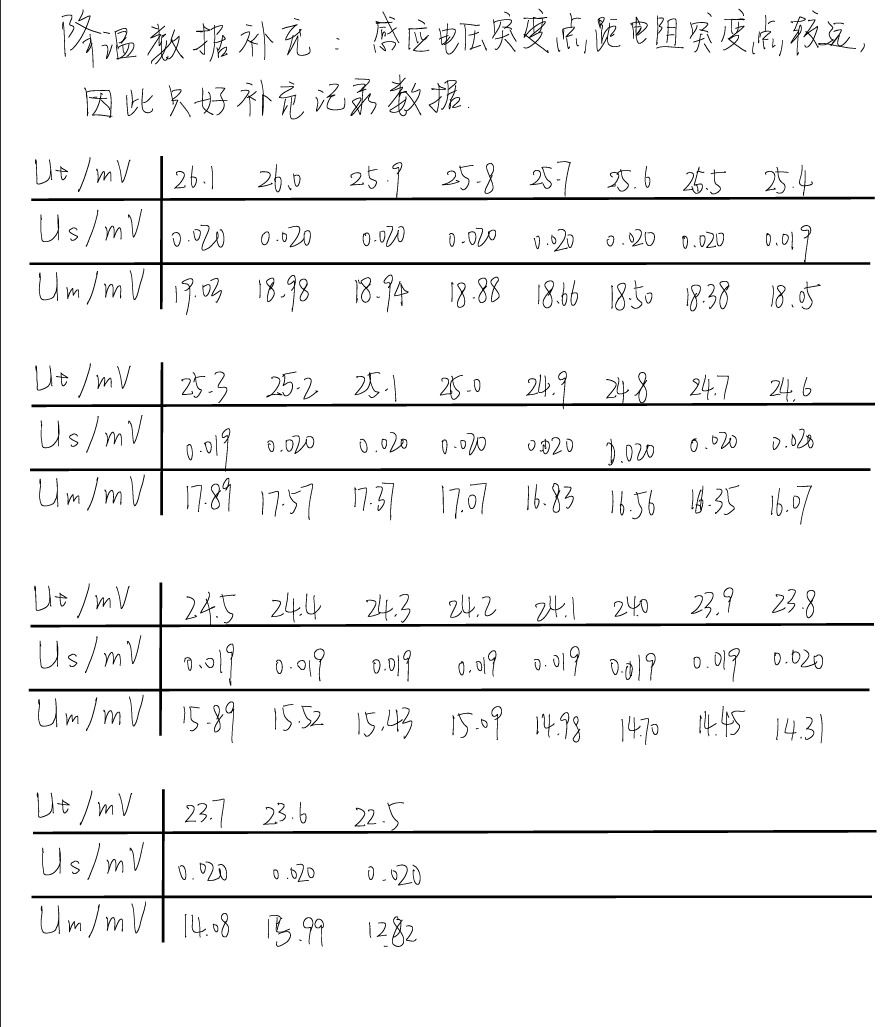 降温数据补充：感应电压突变点距电阻突变点较远，
因此只好补充记录数据.
Ut/mV 26.1 26.0 25.9 25.8 25.7 25.6 25.5 25.4
Us/mV 0.020 0.020 0.020 0.020 0.020 0.020 0.020 0.019
Um/mV 19.03 18.98 18.94 18.88 18.66 18.50 18.38 18.05
Ut/mV 25.3 25.2 25.1 25.0 24.9 24.8 24.7 24.6
Us/mV 0.019 0.020 0.020 0.020 0.020 0.020 0.020 0.020
Um/mV 17.89 17.57 17.37 17.07 16.83 16.56 16.35 16.07
Ut/mV 24.5 24.4 24.3 24.2 24.1 24.0 23.9 23.8
Us/mV 0.019 0.019 0.019 0.019 0.019 0.019 0.019 0.020
Um/mV 15.89 15.52 15.43 15.09 14.98 14.70 14.45 14.31
Ut/mV 23.7 23.6 22.5
Us/mV 0.020 0.020 0.020
Um/mV 14.08 13.99 12.82